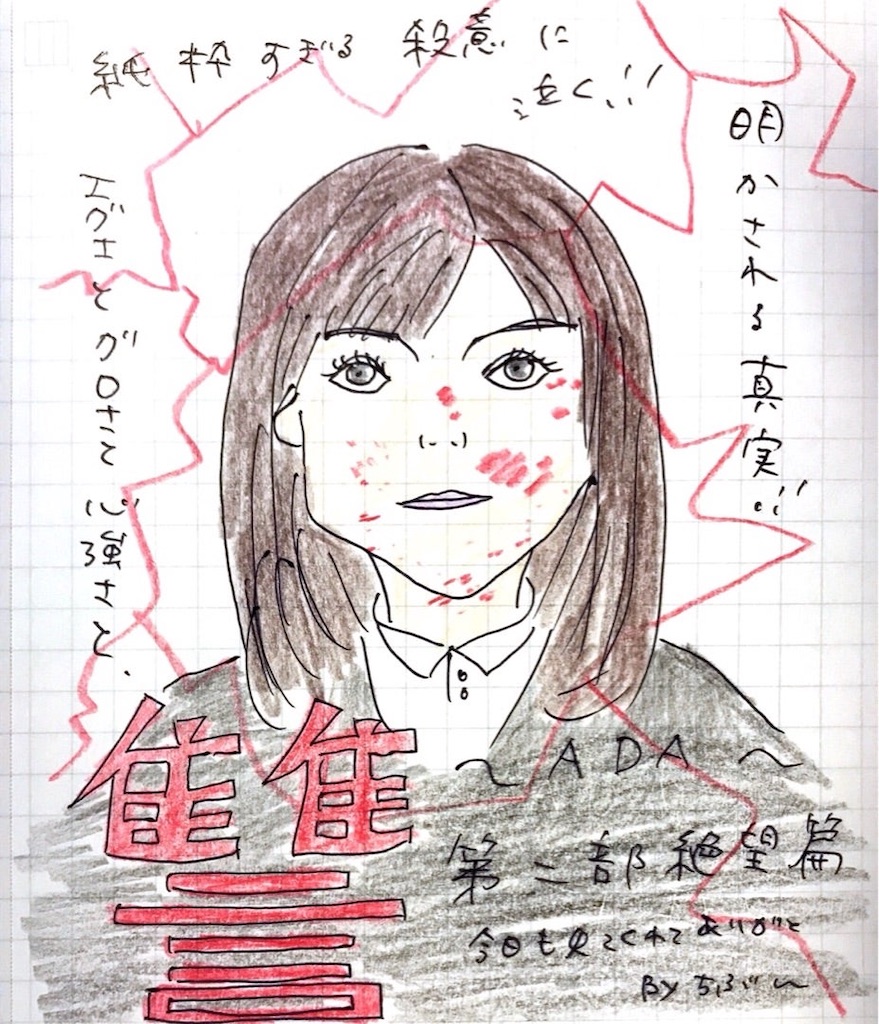 純粋すぎる 殺意に
泣く..!!
明かされる真実..!!
エグエとグロさと心強さと.
讐
〜ADA〜
第二部絶望篇
今日も見てくれてありがと
By